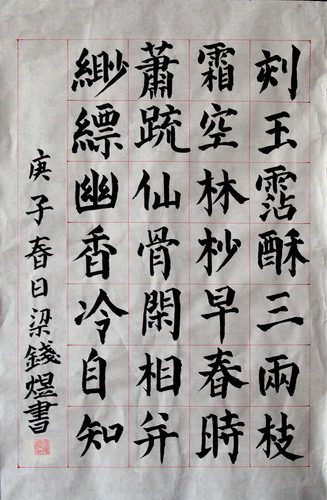 刻玉霑酥三兩枝
霜空林杪早春時
蕭疏仙骨閑相并
緲縹幽香冷自知
庚子春日梁錢煜書